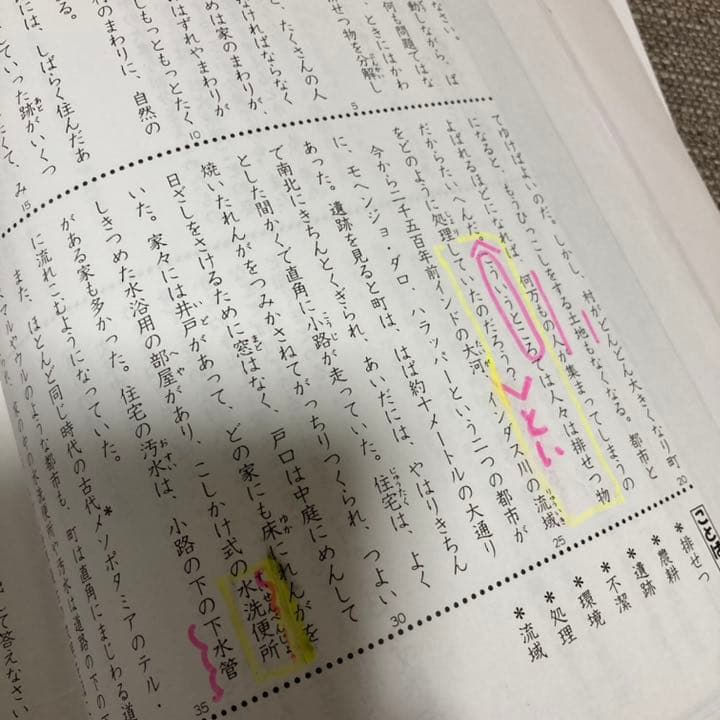 なさい。ば
動しながら、
何も問題ではな
、ときにはかわ
せつ物を分解し
、たくさんの人
なければならなく
めは家のまわりが、
はずれやまわりが
しもっともっとたく
のまわりに、自然の
は、しばらく住んだあ
ていった跡がいくつ
み
5
10
15
てゆけばよいのだ。しかし、村がどんどん大きくなり町
になると、もうひっこしをする土地もなくなる。都市と
よばれるほどになれば、何万もの人が集まってしまうの
だからたいへんだ。こういうところでは人々は排せつ物
をどのように処理していたのだろう?
今から二千五百年前インドの大河、インダス川の流域
に、モヘンジョ・ダロ、ハラッパーという二つの都市が
あった。遺跡を見ると町は、はば約十メートルの大通り
で南北にきちんとくぎられ、あいだには、やはりきちん
とした間かくで直角に小路が走っていた。住宅は、よく
焼いたれんがをつみかさねてがっちりつくられ、つよい
日ざしをさけるために窓はなく、戸口は中庭にめんして
いた。家々には井戸があって、どの家にも床にれんがを
しきつめた水浴用の部屋があり、こしかけ式の水洗便所
がある家も多かった。住宅の汚水は、小路の下の下水管
に流れこむようになっていた。
また、ほとんど同じ時代の古代*メソポタミアのテル・
マルやウルのような都市も、町は直角にまじわる道
とい
20
25
30
35
*排せつ
*農耕
*遺跡
*不潔
*環境
*処理
*流域
て答えなさい